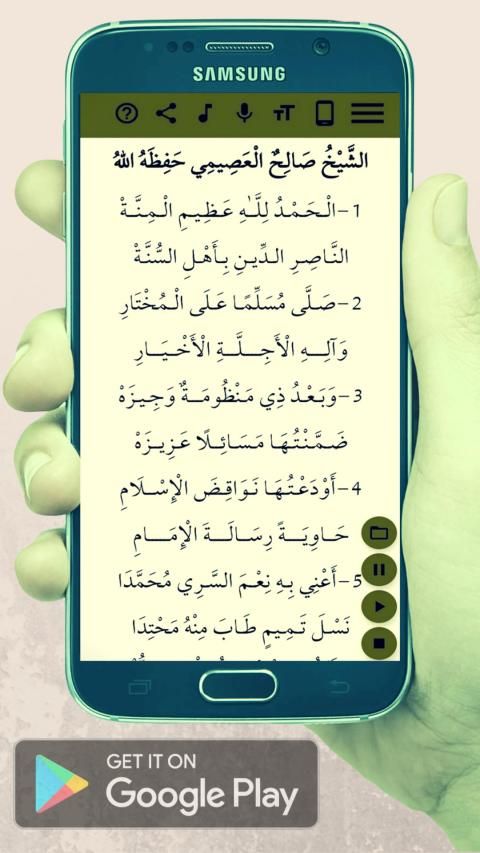 SAMSUNG
الشَّيْخُ صَالِحٌ الْعَصِيمِي حَفِظَهُ اللهُ
1-الْحَمْدُ لِلَّهِ عَظِيمِ الْمِنَّةْ
النَّاصِرِ الدِّينِ بِأَهْلِ السُّنَّةْ
2-صَلَّى مُسَلِّمًا عَلَى الْمُخْتَارِ
وَآلِهِ الْأَجِلَّةِ الْأَخْيَارِ
3-وَبَعْدُ ذِي مَنْظُومَةٌ وَجِيزَهْ
ضَمَّنْتُهَا مَسَائِلًا عَزِيزَهْ
4-أَوْدَعْتُهَا نَوَاقِضَ الْإِسْلَامِ
حَاوِيَةً رِسَالَةَ الْإِمَامِ
5-أَعْنِي بِهِ نِعْمَ السَّرِي مُحَمَّدَا
نَسْلَ تَمِيمٍ طَابَ مِنْهُ مَحْتِدَا
GET IT ON
Google Play